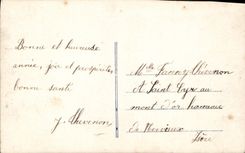 Bonne et heureuse
année, joie et prospérité,
bonne santé
J. Thevenon
Mlle Fanny Thévenon
A Saint Cyr au
mont d'or hameau
de
Isère